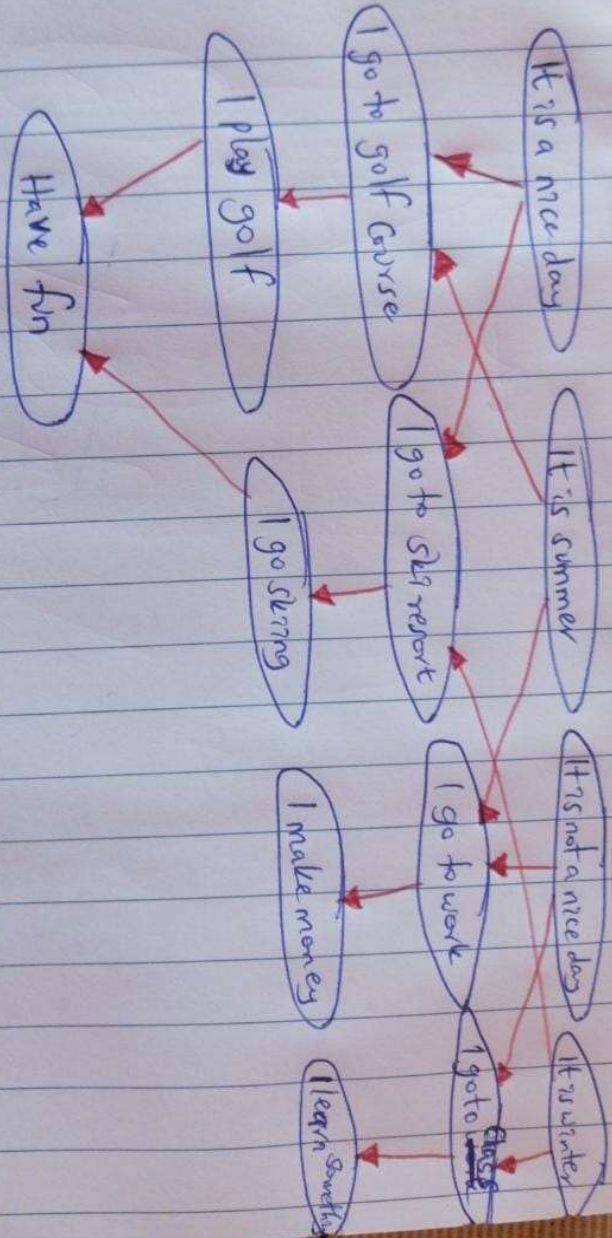 It is a nice day
It is summer
It is not a nice day
It is winter
I go to golf course
I go to ski resort
I go to work
I go to class
I play golf
I go skiing
I make money
I learn something
Have fun